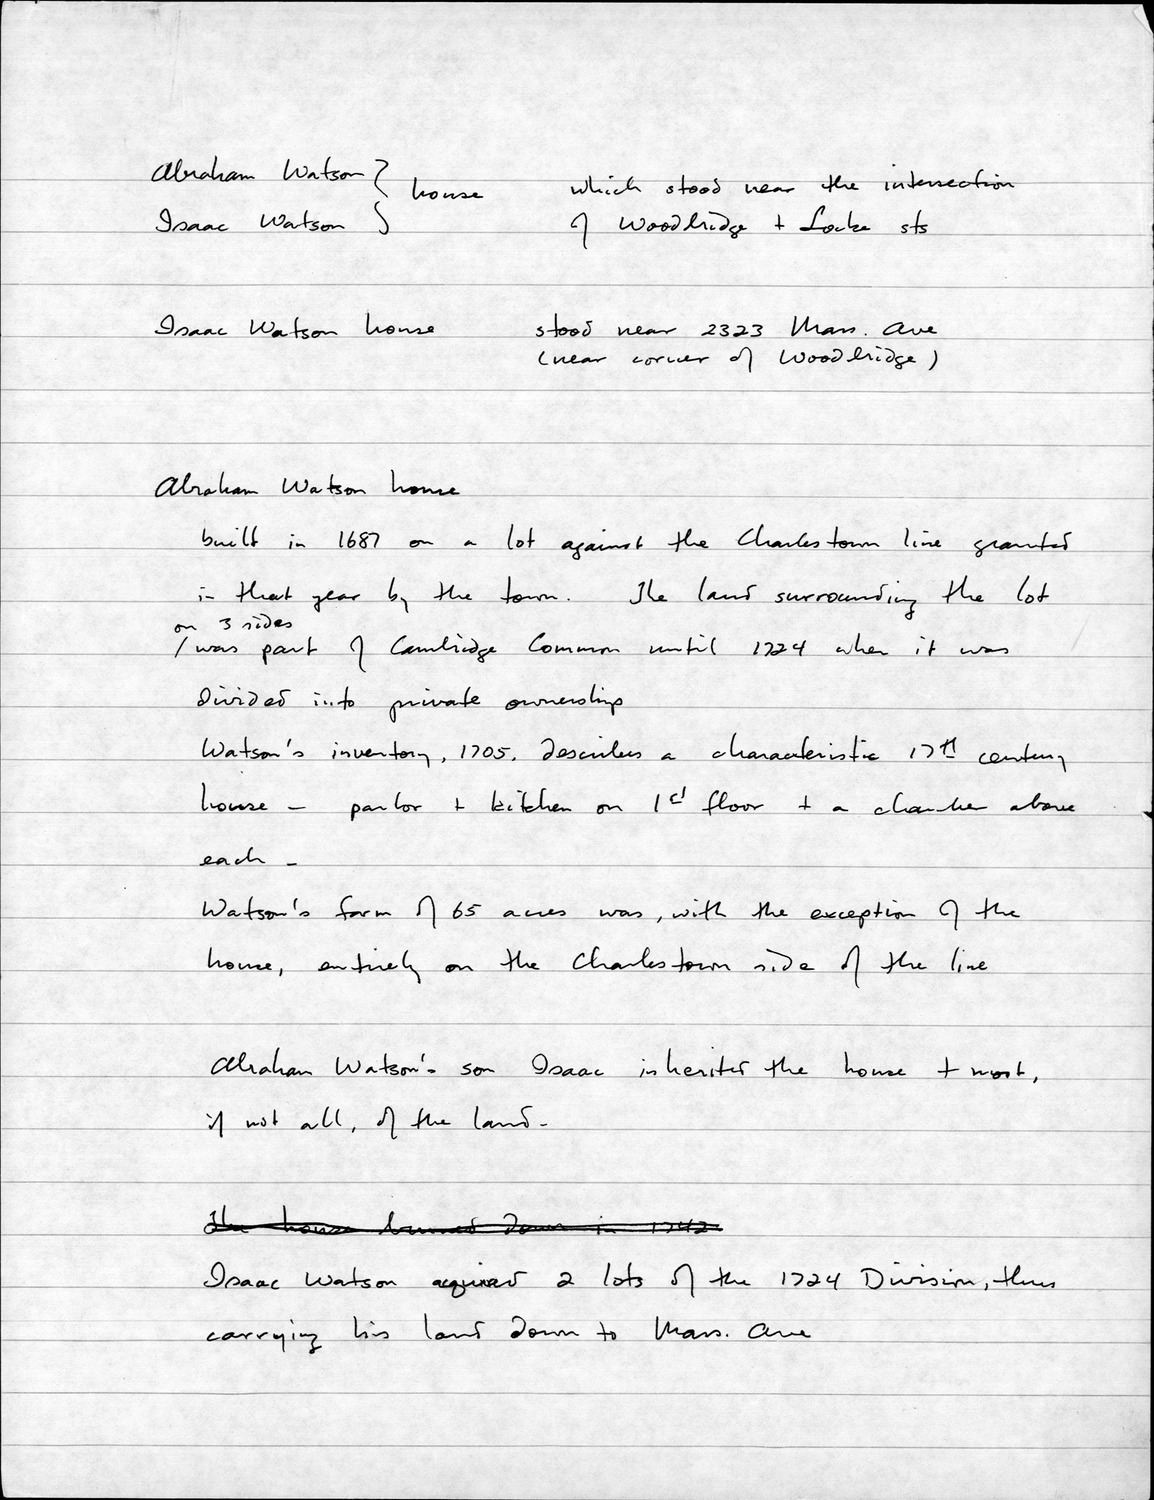 Abraham Watson } house which stood near the intersection
Isaac Watson } of Woodbridge + Locke sts
Isaac Watson house stood near 2323 Mass. Ave
(near corner of Woodbridge)
Abraham Watson house
built in 1687 on a lot against the Charlestown line granted
in that year by the town. The land surrounding the lot
on 3 sides
/ was part of Cambridge Common until 1724 when it was
divided into private ownership
Watson's inventory, 1705, describes a characteristic 17th century
house – parlor + kitchen on 1st floor + a chamber above
each –
Watson's farm of 65 acres was, with the exception of the
house, entirely on the Charlestown side of the line
Abraham Watson's son Isaac inherited the house + most,
if not all, of the land.
The house burned down in 1742
Isaac Watson acquired 2 lots of the 1724 Division, thus
carrying his land down to Mass. Ave